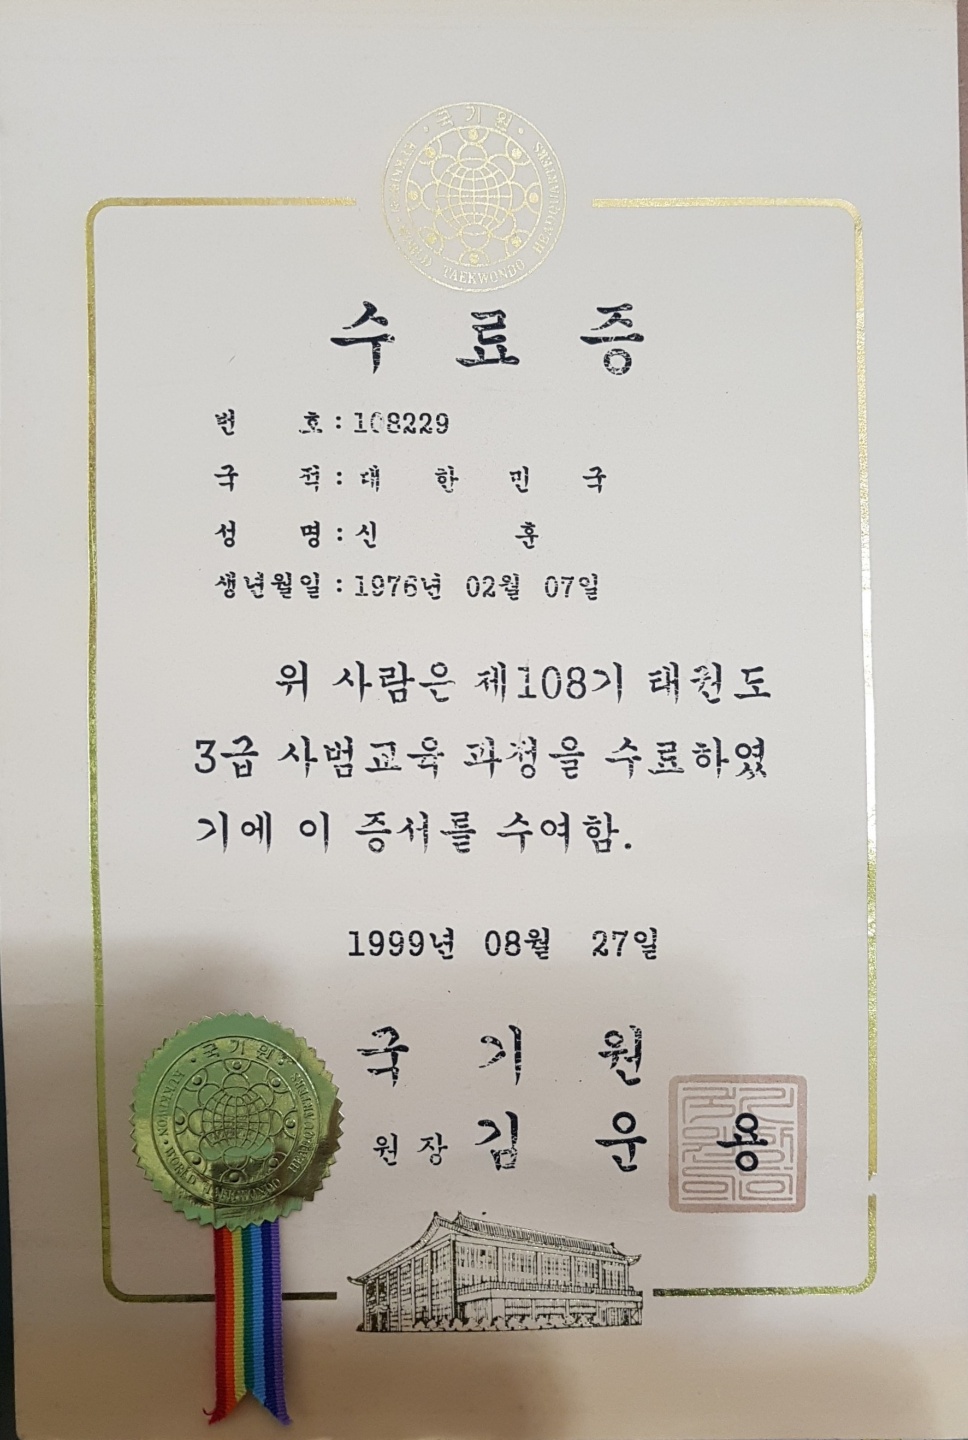 ·국기원·
WORLD TAEKWONDO HEADQUARTERS · KUKKIWON
수 료 증
번 호 : 108229
국 적 : 대 한 민 국
성 명 : 신 훈
생년월일 : 1976년 02월 07일
위 사람은 제108기 태권도
3급 사범교육 과정을 수료하였
기에 이 증서를 수여함.
1999년 08월 27일
국 기 원
원 장 김 운 용
·국기원·
WORLD TAEKWONDO HEADQUARTERS · KUKKIWON